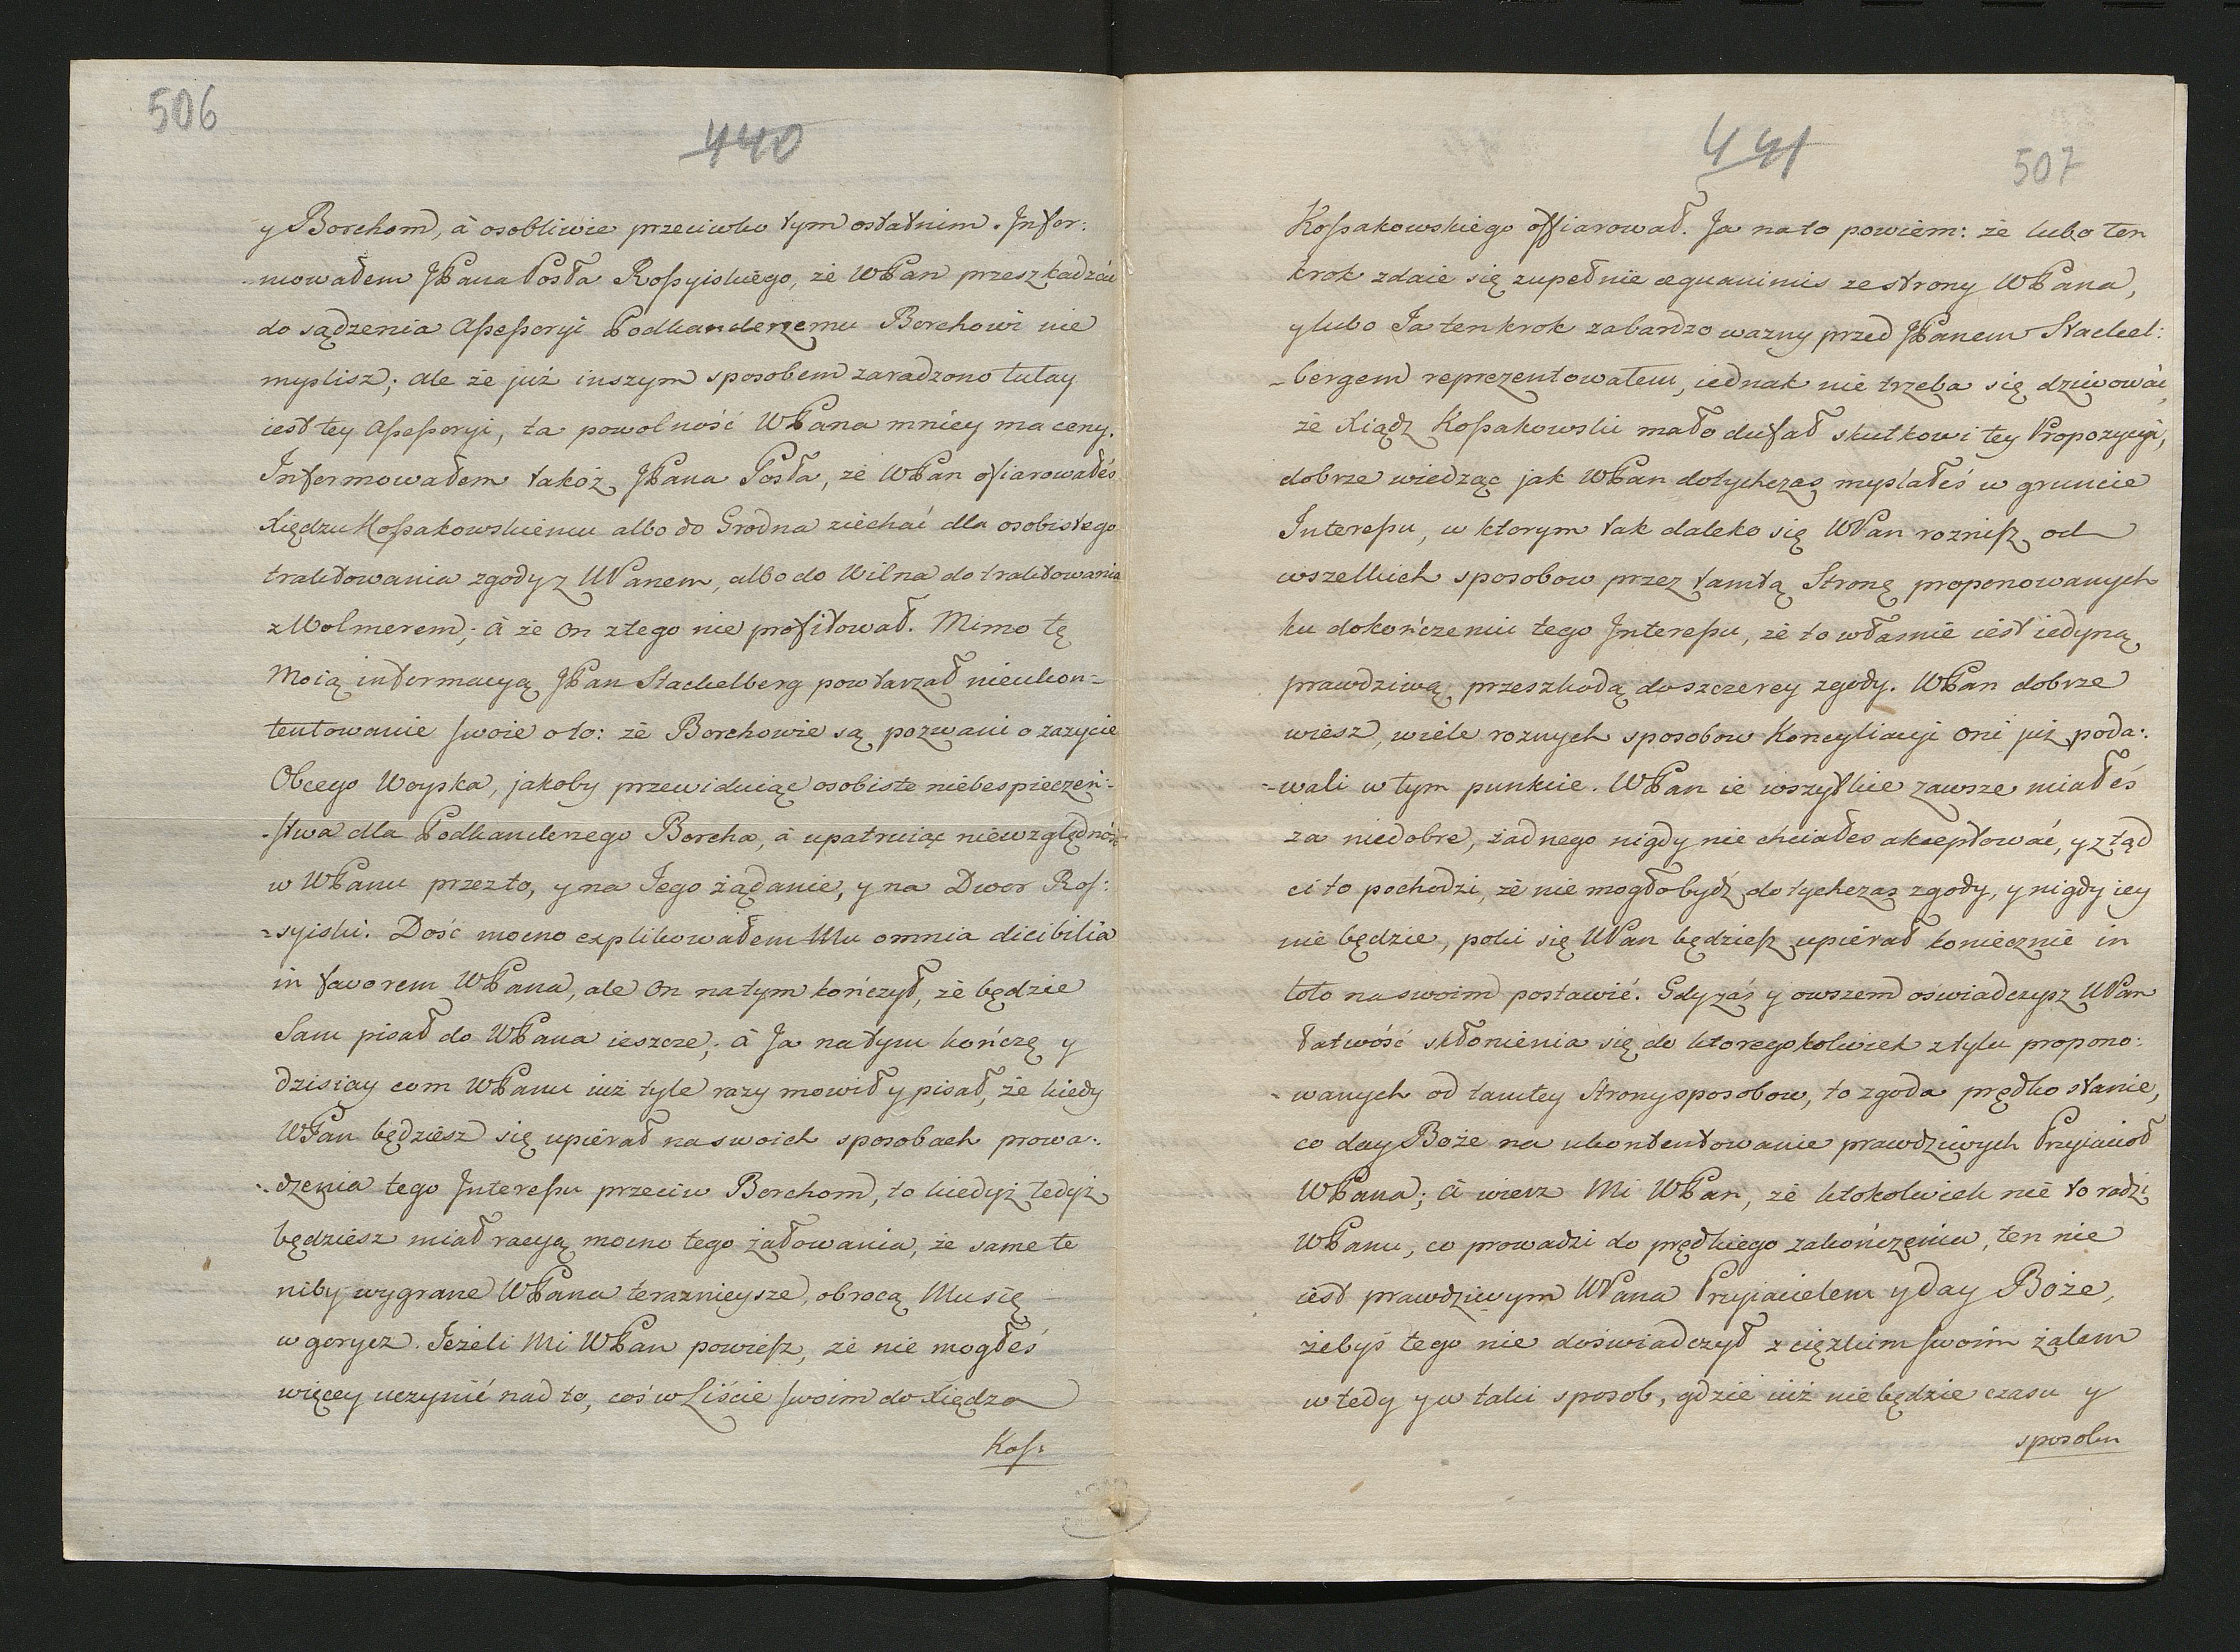 506
440
y Borchom, à osobliwie przeciwko tym ostatnim. Infor:
mowałem JPana Posła Rossyiskiego, że WPan przeszkadzać
do sądzenia Assessoryi Podkanclerzemu Borchowi nie
myslisz; ale że już inszym sposobem zaradzono tutay
iest tey Assessoryi, ta powolność WPana mniéy ma ceny.
Informowałem takoż JPana Posła, że WPan ofiarowałeś
Xiędzu Kossakowskiemu albo do Grodna ziechać dla osobistego
traktowania zgody z WPanem, albo do Wilna do traktowania
z Wolmerem; à że on z tego nie profitował. Mimo tę
Moią informacyą JPan Stackelberg powtarzał nieukon-
tentowanie swoie o to: że Borchowie są pozwani o zazycie
Obcego Woyska, jakoby przewiduiąc osobiste niebespieczeń:
:stwa dla Podkanclerzego Borcha, à upatruiąc niewzględność
w WPanu przez to, y na Jego żądanie, y na Dwor Ros:
:syiski. Dość mocno explikowałem Mu omnia dicibilia
in favorem WPana, ale on na tym kończył, że będzie
Sam pisał do WPana ieszcze; à Ja na tym kończę y
dzisiay com WPanu iuż tyle razy mowił y pisał, że kiedy
WPan będziesz się upiérał na swoich sposobach prowa:
:dzenia tego Interessu przeciw Borchom, to kiedyż tedyż
będziesz miał racyą mocno tego żałowania, że same te
niby wygrane WPana teraznieysze, obrocą Mu się
w gorycz. Jeżeli Mi WPan powiesz, że nie mogłeś
więcey uczynić nad to, coś w Liście swoim do Xiędza
Kos:
441
507
Kossakowskiego offiarował. Ja na to powiém: że lubo ten
krok zdaie się zupełnie æquanimis ze strony WPana,
y lubo Ja ten krok za bardzo wazny przed JPanem Stackel:
-bergem reprezentowałem, iednak nie trzeba się dziwować,
że Xiądz Kossakowski mało dufał skutkowi tey Propozycyi,
dobrze wiedząc jak WPan dotychczas myslałeś w gruncie
Interessu, w ktorym tak daleko się WPan roznisz od
wszelkich sposobow przez tamtą Stronę proponowanych
ku dokończeniu tego Interessu, że to własnie iest iedyną
prawdziwą przeszkodą do szczerey zgody. WPan dobrze
wiesz, wiele roznych sposobow Koncyliacyi oni już poda:
-wali w tym punkcie. WPan ie wszytkie zawsze miałeś
za niedobre, żadnego nigdy nie chciałes akceptować, y ztąd
ci to pochodzi, że nie mogło bydź dotychczas zgody, y nigdy iey
nie będzie, poki się WPan będziesz upiérał koniecznie in
toto na swoim postawić. Gdy zaś y owszem oswiadczysz WPan
łatwość skłonienia się do ktoregokolwiek z tylu propono:
- wanych od tamtey Strony sposobow, to zgoda prędko stanie,
co day Boże na ukontentowanie prawdziwych Przyiacioł
WPana; à wierz Mi WPan, że ktokolwiek nie to radzi
WPanu, co prowadzi do prędkiego zakończenia, ten nie
iest prawdziwym WPana Przyiacielem y day Boże,
żebyś tego nie doświadczył z ciężkim swoim żalem
w tedy y w taki sposob, gdzie iuż nie będzie czasu y
sposobu